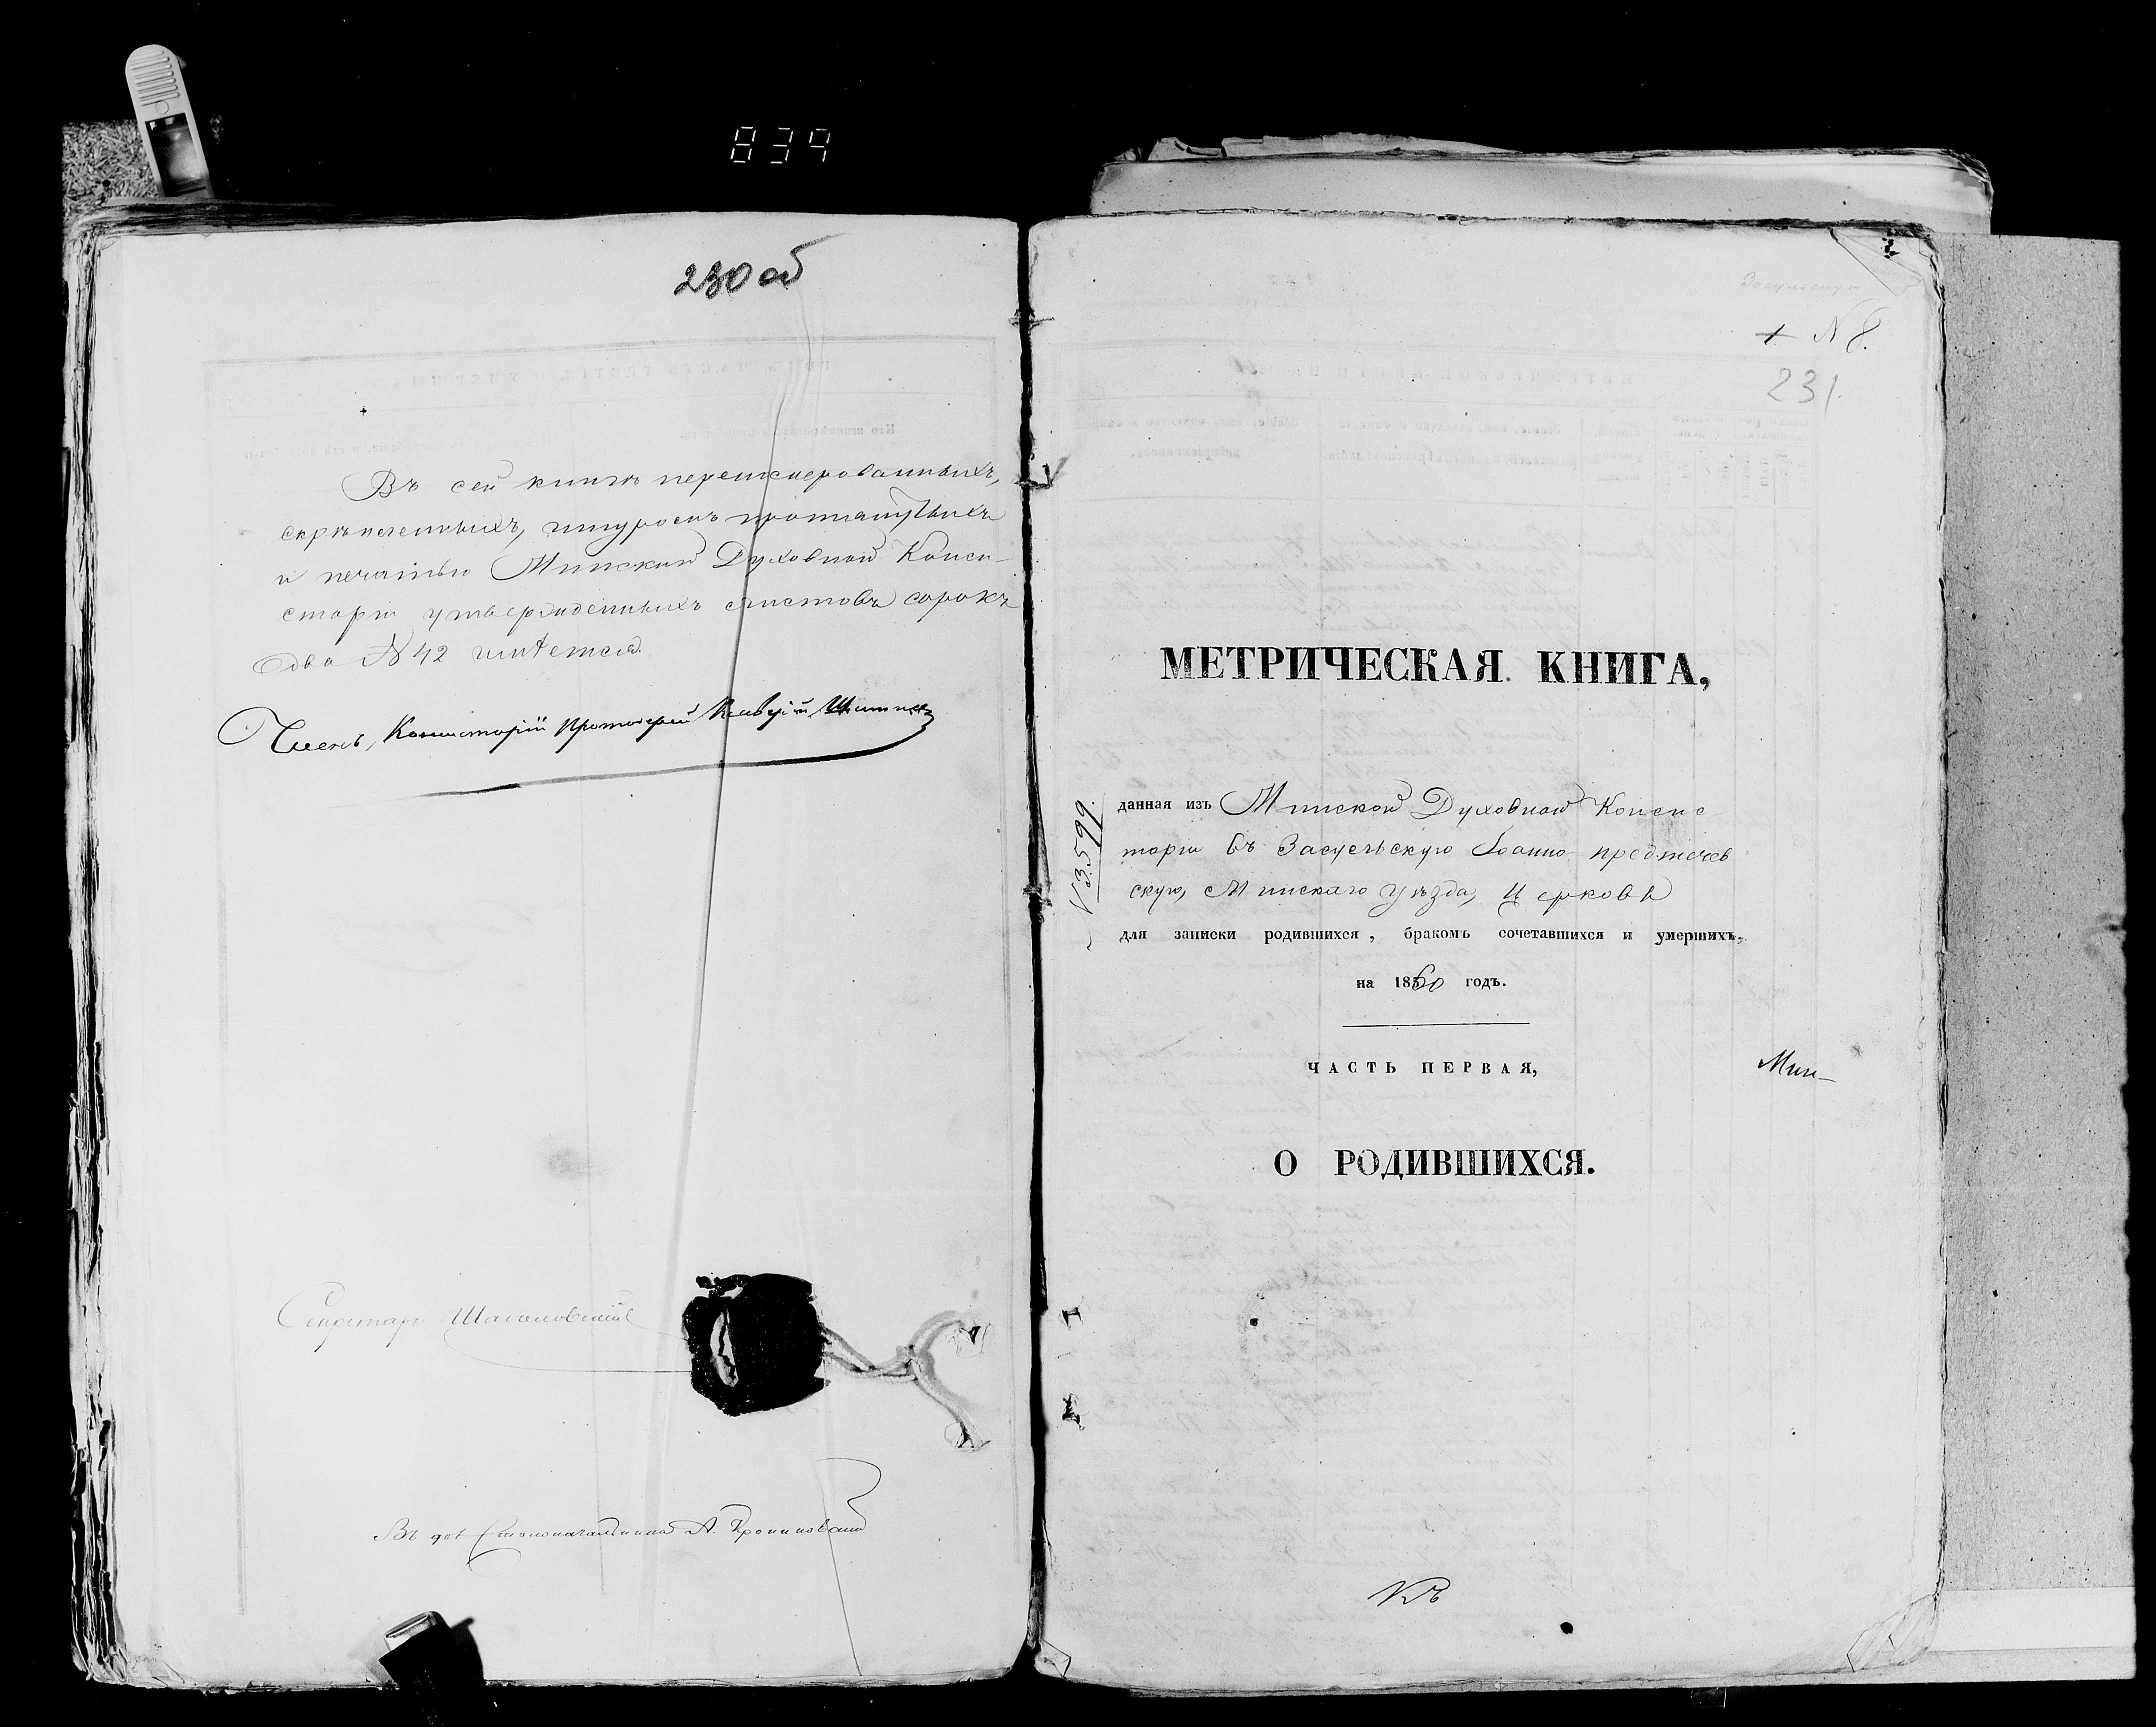 839
230 об
Въ сей книгѣ перенумерованныхъ,
скрѣпленныхъ, шнуромъ протянутыхъ
и печатью Минской Духовной Конси-
сторіи утвержденныхъ листовъ сорокъ
два N 42 имѣется.
Членъ, Консисторіи Протоіерей
Секретарь
Въ дол. Столоначальника А.
+ N 8.
231
МЕТРИЧЕСКАЯ КНИГА,
N 3.599.
данная изъ Минской Духовной Консис
торіи въ Засульскую Іоанно-предтечев
скую, Минскаго уѣзда, Церковь
для записки родившихся, бракомъ сочетавшихся и умершихъ,
на 1860 годъ.
ЧАСТЬ ПЕРВАЯ,
Мин-
О РОДИВШИХСЯ.